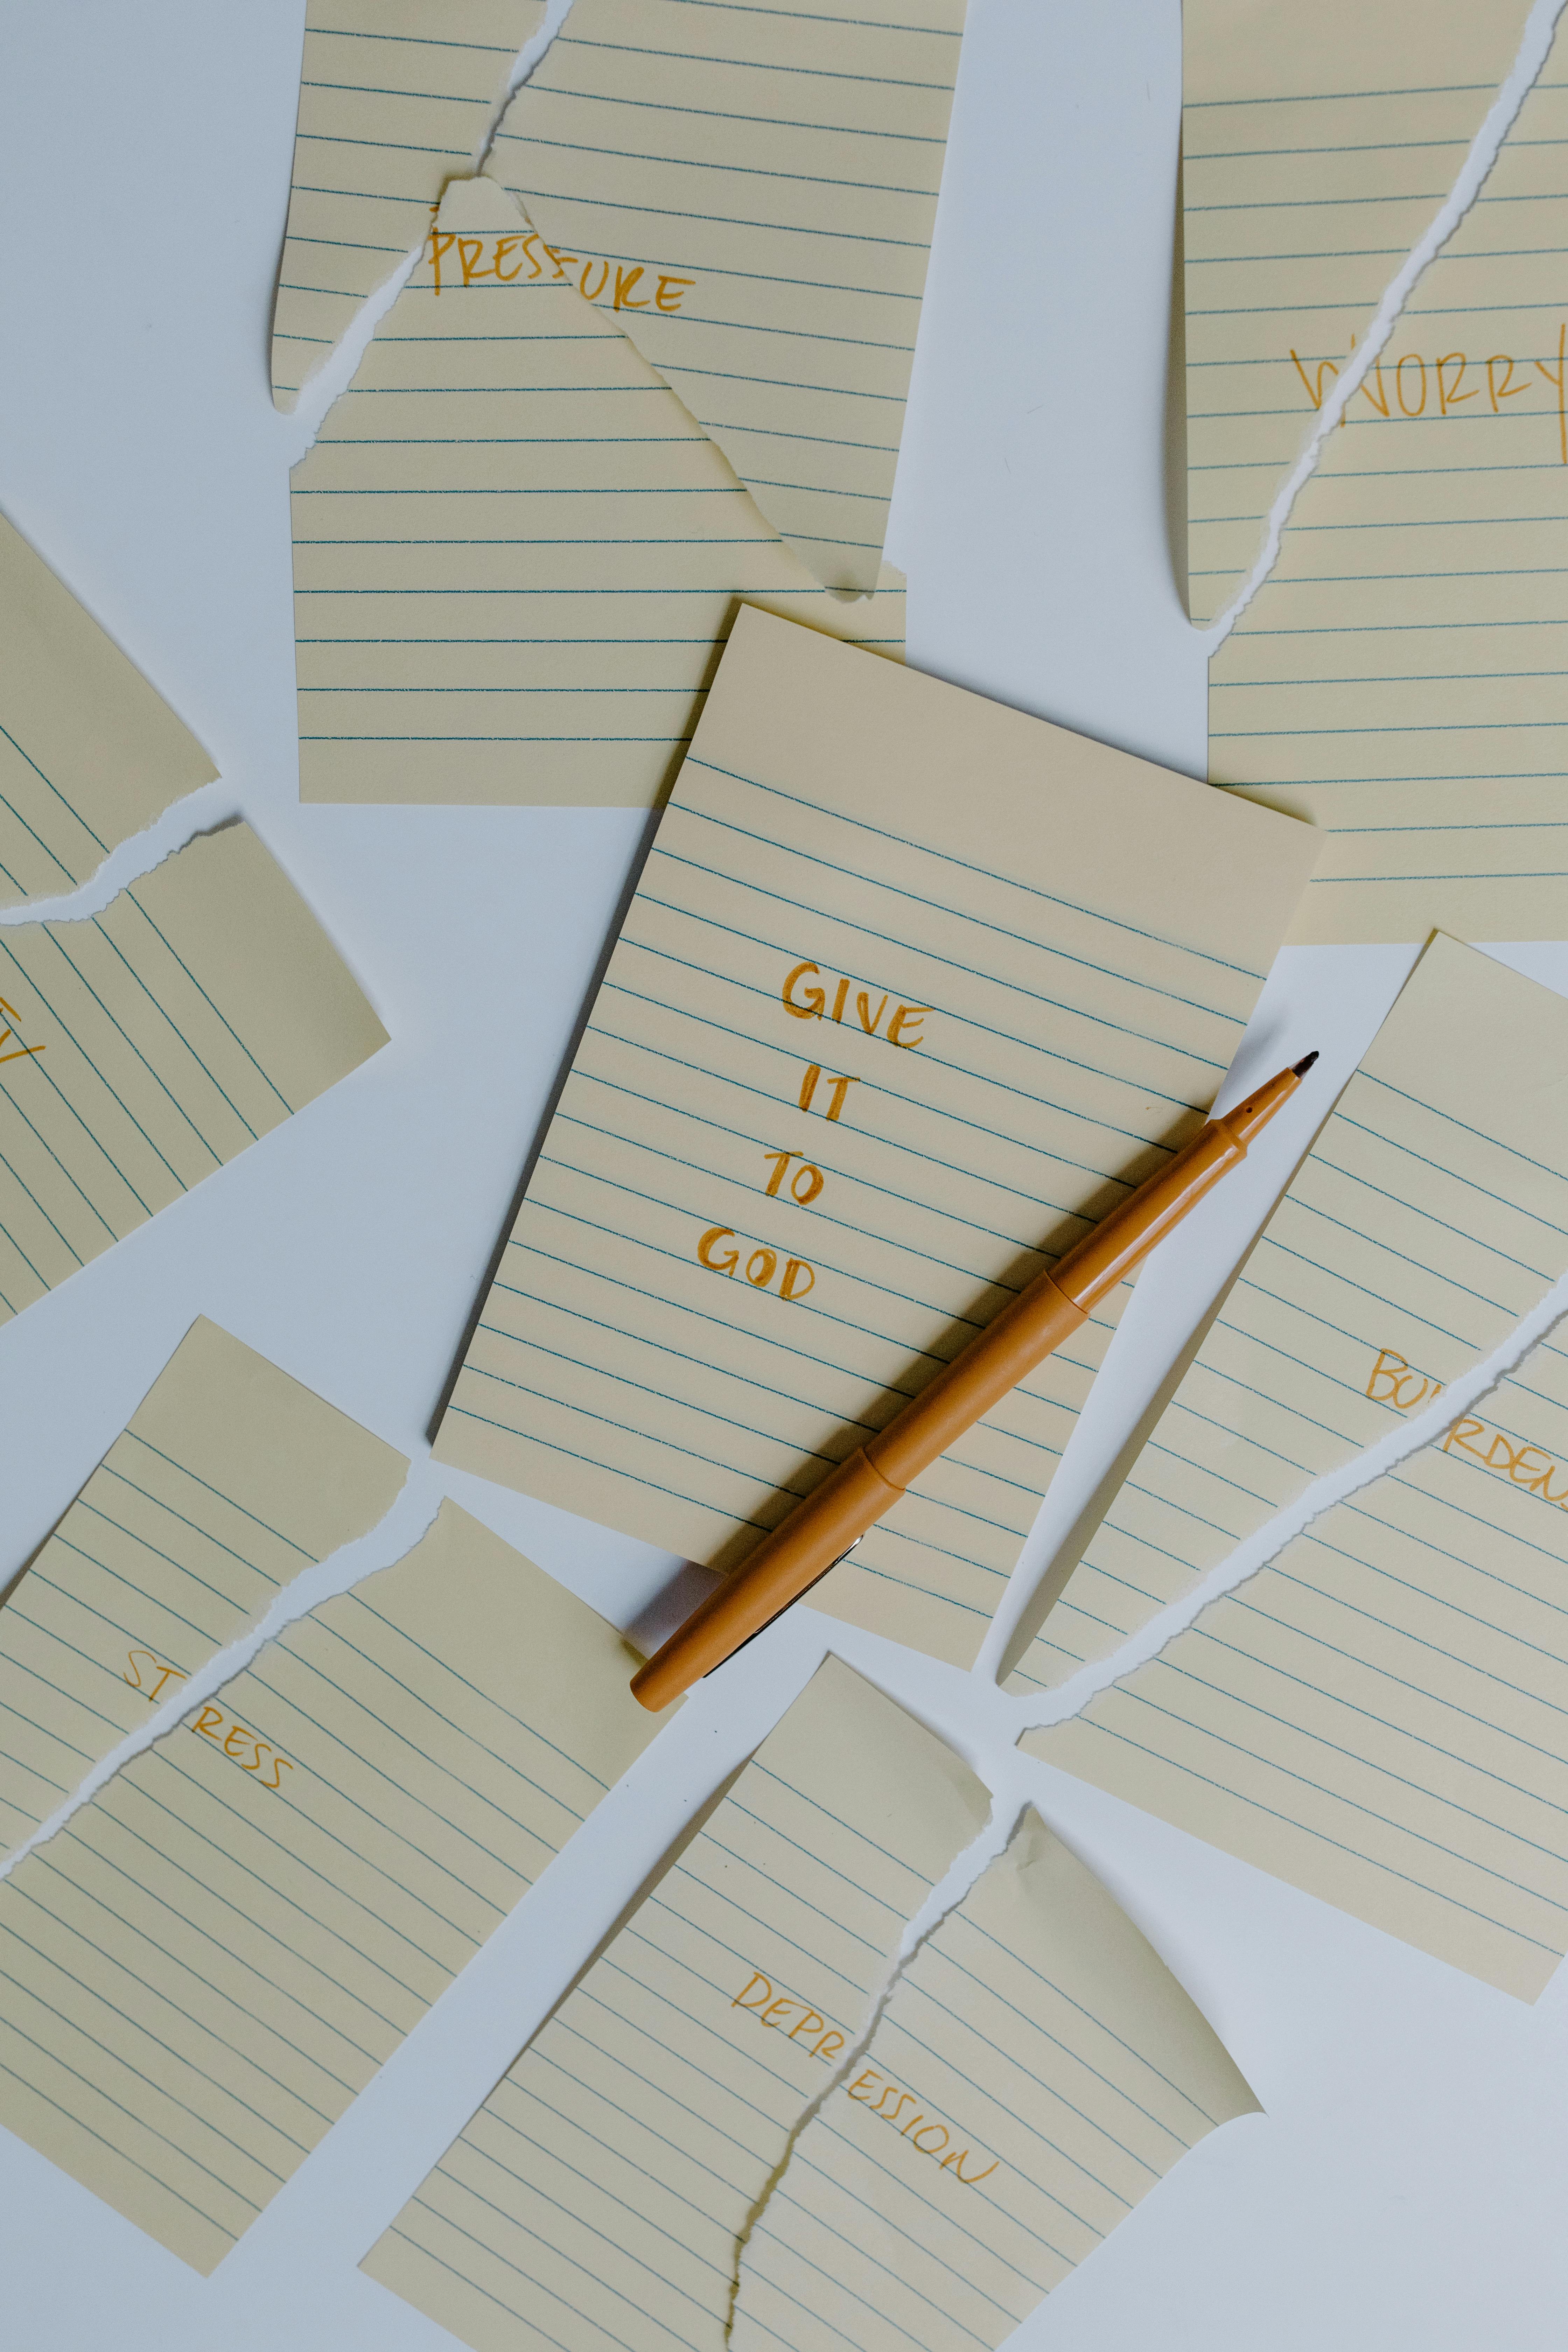 PRESSURE
WORRY
GIVE
IT
TO
GOD
BURDENS
STRESS
DEPRESSION